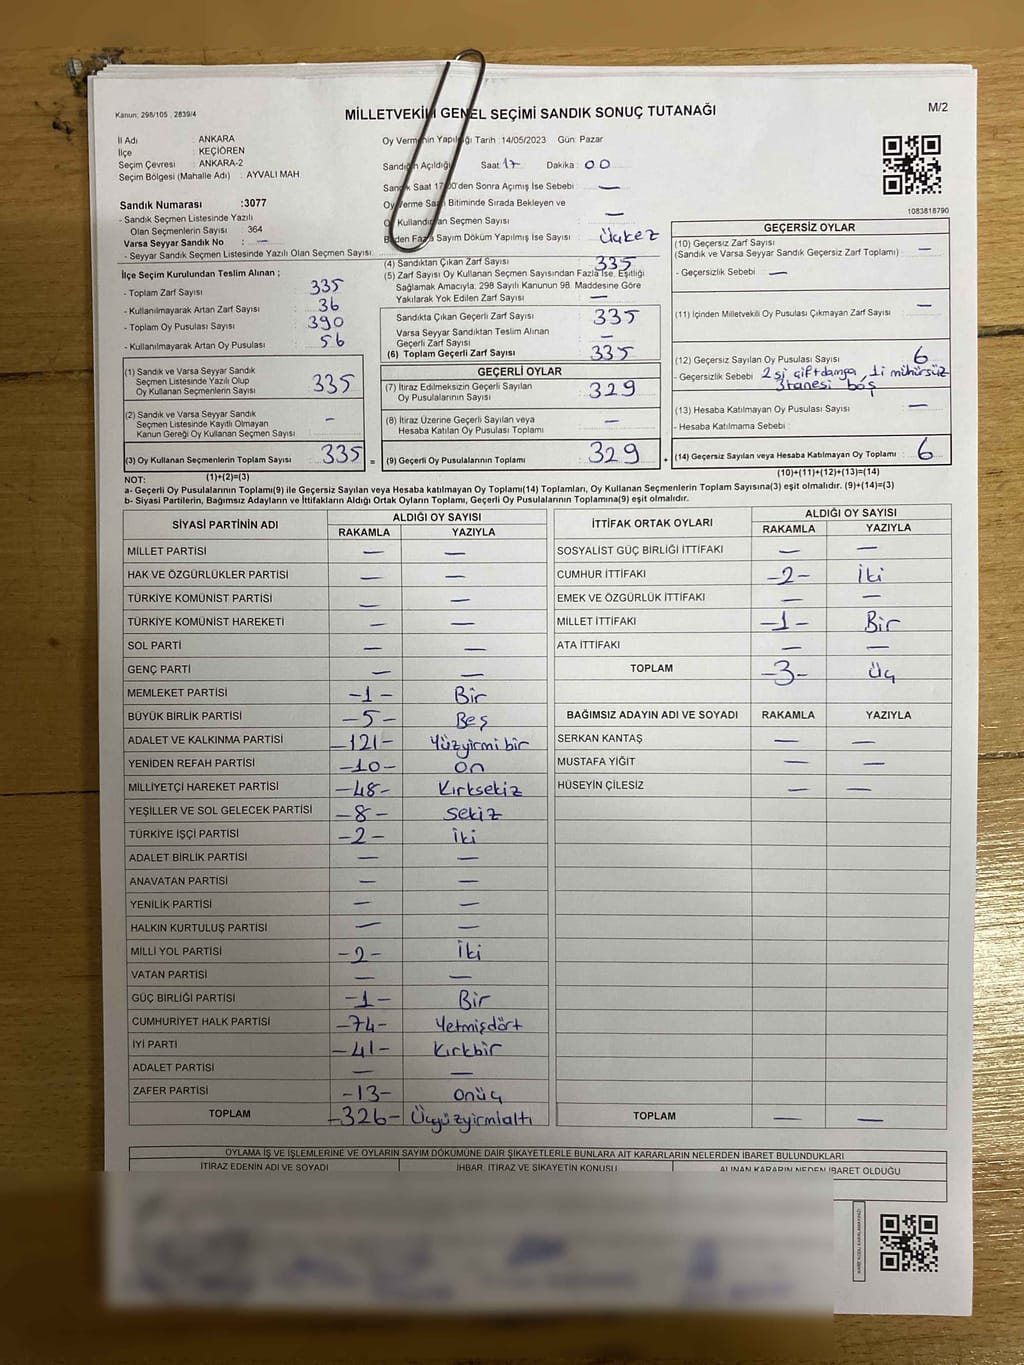 Kanun: 298/105 , 2839/4
MİLLETVEKİLİ GENEL SEÇİMİ SANDIK SONUÇ TUTANAĞI
M/2
İl Adı : ANKARA
İlçe : KEÇİÖREN
Seçim Çevresi : ANKARA-2
Seçim Bölgesi (Mahalle Adı) : AYVALI MAH
Sandık Numarası :3077
- Sandık Seçmen Listesinde Yazılı
Olan Seçmenlerin Sayısı 364
Varsa Seyyar Sandık No : —
- Seyyar Sandık Seçmen Listesinde Yazılı Olan Seçmen Sayısı:
Oy Vermenin Yapıldığı Tarih :14/05/2023 Gün: Pazar
Sandığın Açıldığı Saat: 17 Dakika : 00
Sandık Saat 17:00'den Sonra Açımış İse Sebebi : —
Oy Verme Saati Bitiminde Sırada Bekleyen ve
Oy Kullandırılan Seçmen Sayısı : —
Birden Fazla Sayım Döküm Yapılmış İse Sayısı : Üçkez
1083818790
İlçe Seçim Kurulundan Teslim Alınan ;
- Toplam Zarf Sayısı : 335
- Kullanılmayarak Artan Zarf Sayısı : 36
- Toplam Oy Pusulası Sayısı : 390
- Kullanılmayarak Artan Oy Pusulası : 56
(1) Sandık ve Varsa Seyyar Sandık
Seçmen Listesinde Yazılı Olup
Oy Kullanan Seçmenlerin Sayısı : 335
(2) Sandık ve Varsa Seyyar Sandık
Seçmen Listesinde Kayıtlı Olmayan
Kanun Gereği Oy Kullanan Seçmen Sayısı : –
(3) Oy Kullanan Seçmenlerin Toplam Sayısı : 335 =
(1)+(2)=(3)
(4) Sandıktan Çıkan Zarf Sayısı : 335
(5) Zarf Sayısı Oy Kullanan Seçmen Sayısından Fazla İse, Eşitliği
Sağlamak Amacıyla; 298 Sayılı Kanunun 98. Maddesine Göre
Yakılarak Yok Edilen Zarf Sayısı : —
Sandıkta Çıkan Geçerli Zarf Sayısı : 335
Varsa Seyyar Sandıktan Teslim Alınan
Geçerli Zarf Sayısı : —
(6) Toplam Geçerli Zarf Sayısı : 335
GEÇERLİ OYLAR
(7) İtiraz Edilmeksizin Geçerli Sayılan
Oy Pusulalarının Sayısı : 329
(8) İtiraz Üzerine Geçerli Sayılan veya
Hesaba Katılan Oy Pusulası Toplamı : —
(9) Geçerli Oy Pusulalarının Toplamı : 329 +
GEÇERSİZ OYLAR
(10) Geçersiz Zarf Sayısı
(Sandık ve Varsa Seyyar Sandık Geçersiz Zarf Toplamı) : —
- Geçersizlik Sebebi : —
(11) İçinden Milletvekili Oy Pusulası Çıkmayan Zarf Sayısı : —
(12) Geçersiz Sayılan Oy Pusulası Sayısı : 6
- Geçersizlik Sebebi : 2si çift damga, 1i mühürsüz
3tanesi boş
(13) Hesaba Katılmayan Oy Pusulası Sayısı : —
- Hesaba Katılmama Sebebi :
(14) Geçersiz Sayılan veya Hesaba Katılmayan Oy Toplamı : 6
(10)+(11)+(12)+(13)=(14)
NOT:
a- Geçerli Oy Pusulalarının Toplamı(9) ile Geçersiz Sayılan veya Hesaba katılmayan Oy Toplamı(14) Toplamları, Oy Kullanan Seçmenlerin Toplam Sayısına(3) eşit olmalıdır. (9)+(14)=(3)
b- Siyasi Partilerin, Bağımsız Adayların ve İttifakların Aldığı Ortak Oyların Toplamı, Geçerli Oy Pusulalarının Toplamına(9) eşit olmalıdır.
SİYASİ PARTİNİN ADI ALDIĞI OY SAYISI
RAKAMLA YAZIYLA
MİLLET PARTİSİ — —
HAK VE ÖZGÜRLÜKLER PARTİSİ — —
TÜRKİYE KOMÜNİST PARTİSİ — —
TÜRKİYE KOMÜNİST HAREKETİ — —
SOL PARTİ — —
GENÇ PARTİ — —
MEMLEKET PARTİSİ -1- Bir
BÜYÜK BİRLİK PARTİSİ -5- Beş
ADALET VE KALKINMA PARTİSİ -121- Yüzyirmi bir
YENİDEN REFAH PARTİSİ -10- on
MİLLİYETÇİ HAREKET PARTİSİ -48- Kırksekiz
YEŞİLLER VE SOL GELECEK PARTİSİ -8- sekiz
TÜRKİYE İŞÇİ PARTİSİ -2- iki
ADALET BİRLİK PARTİSİ — —
ANAVATAN PARTİSİ — —
YENİLİK PARTİSİ — —
HALKIN KURTULUŞ PARTİSİ — —
MİLLİ YOL PARTİSİ -2- İki
VATAN PARTİSİ — —
GÜÇ BİRLİĞİ PARTİSİ -1- Bir
CUMHURİYET HALK PARTİSİ -74- Yetmişdört
İYİ PARTİ -41- Kırkbir
ADALET PARTİSİ — —
ZAFER PARTİSİ -13- onüç
TOPLAM -326- Üçyüzyirmialtı
İTTİFAK ORTAK OYLARI ALDIĞI OY SAYISI
RAKAMLA YAZIYLA
SOSYALİST GÜÇ BİRLİĞİ İTTİFAKI — —
CUMHUR İTTİFAKI -2- İki
EMEK VE ÖZGÜRLÜK İTTİFAKI — —
MİLLET İTTİFAKI -1- Bir
ATA İTTİFAKI — —
TOPLAM -3- Üç
BAĞIMSIZ ADAYIN ADI VE SOYADI RAKAMLA YAZIYLA
SERKAN KANTAŞ — —
MUSTAFA YİĞİT — —
HÜSEYİN ÇİLESİZ — —
TOPLAM — —
OYLAMA İŞ VE İŞLEMLERİNE VE OYLARIN SAYIM DÖKÜMÜNE DAİR ŞİKAYETLERLE BUNLARA AİT KARARLARIN NELERDEN İBARET BULUNDUKLARI
İTİRAZ EDENİN ADI VE SOYADI İHBAR, İTİRAZ VE ŞİKAYETİN KONUSU ALINAN KARARIN NEDEN İBARET OLDUĞU